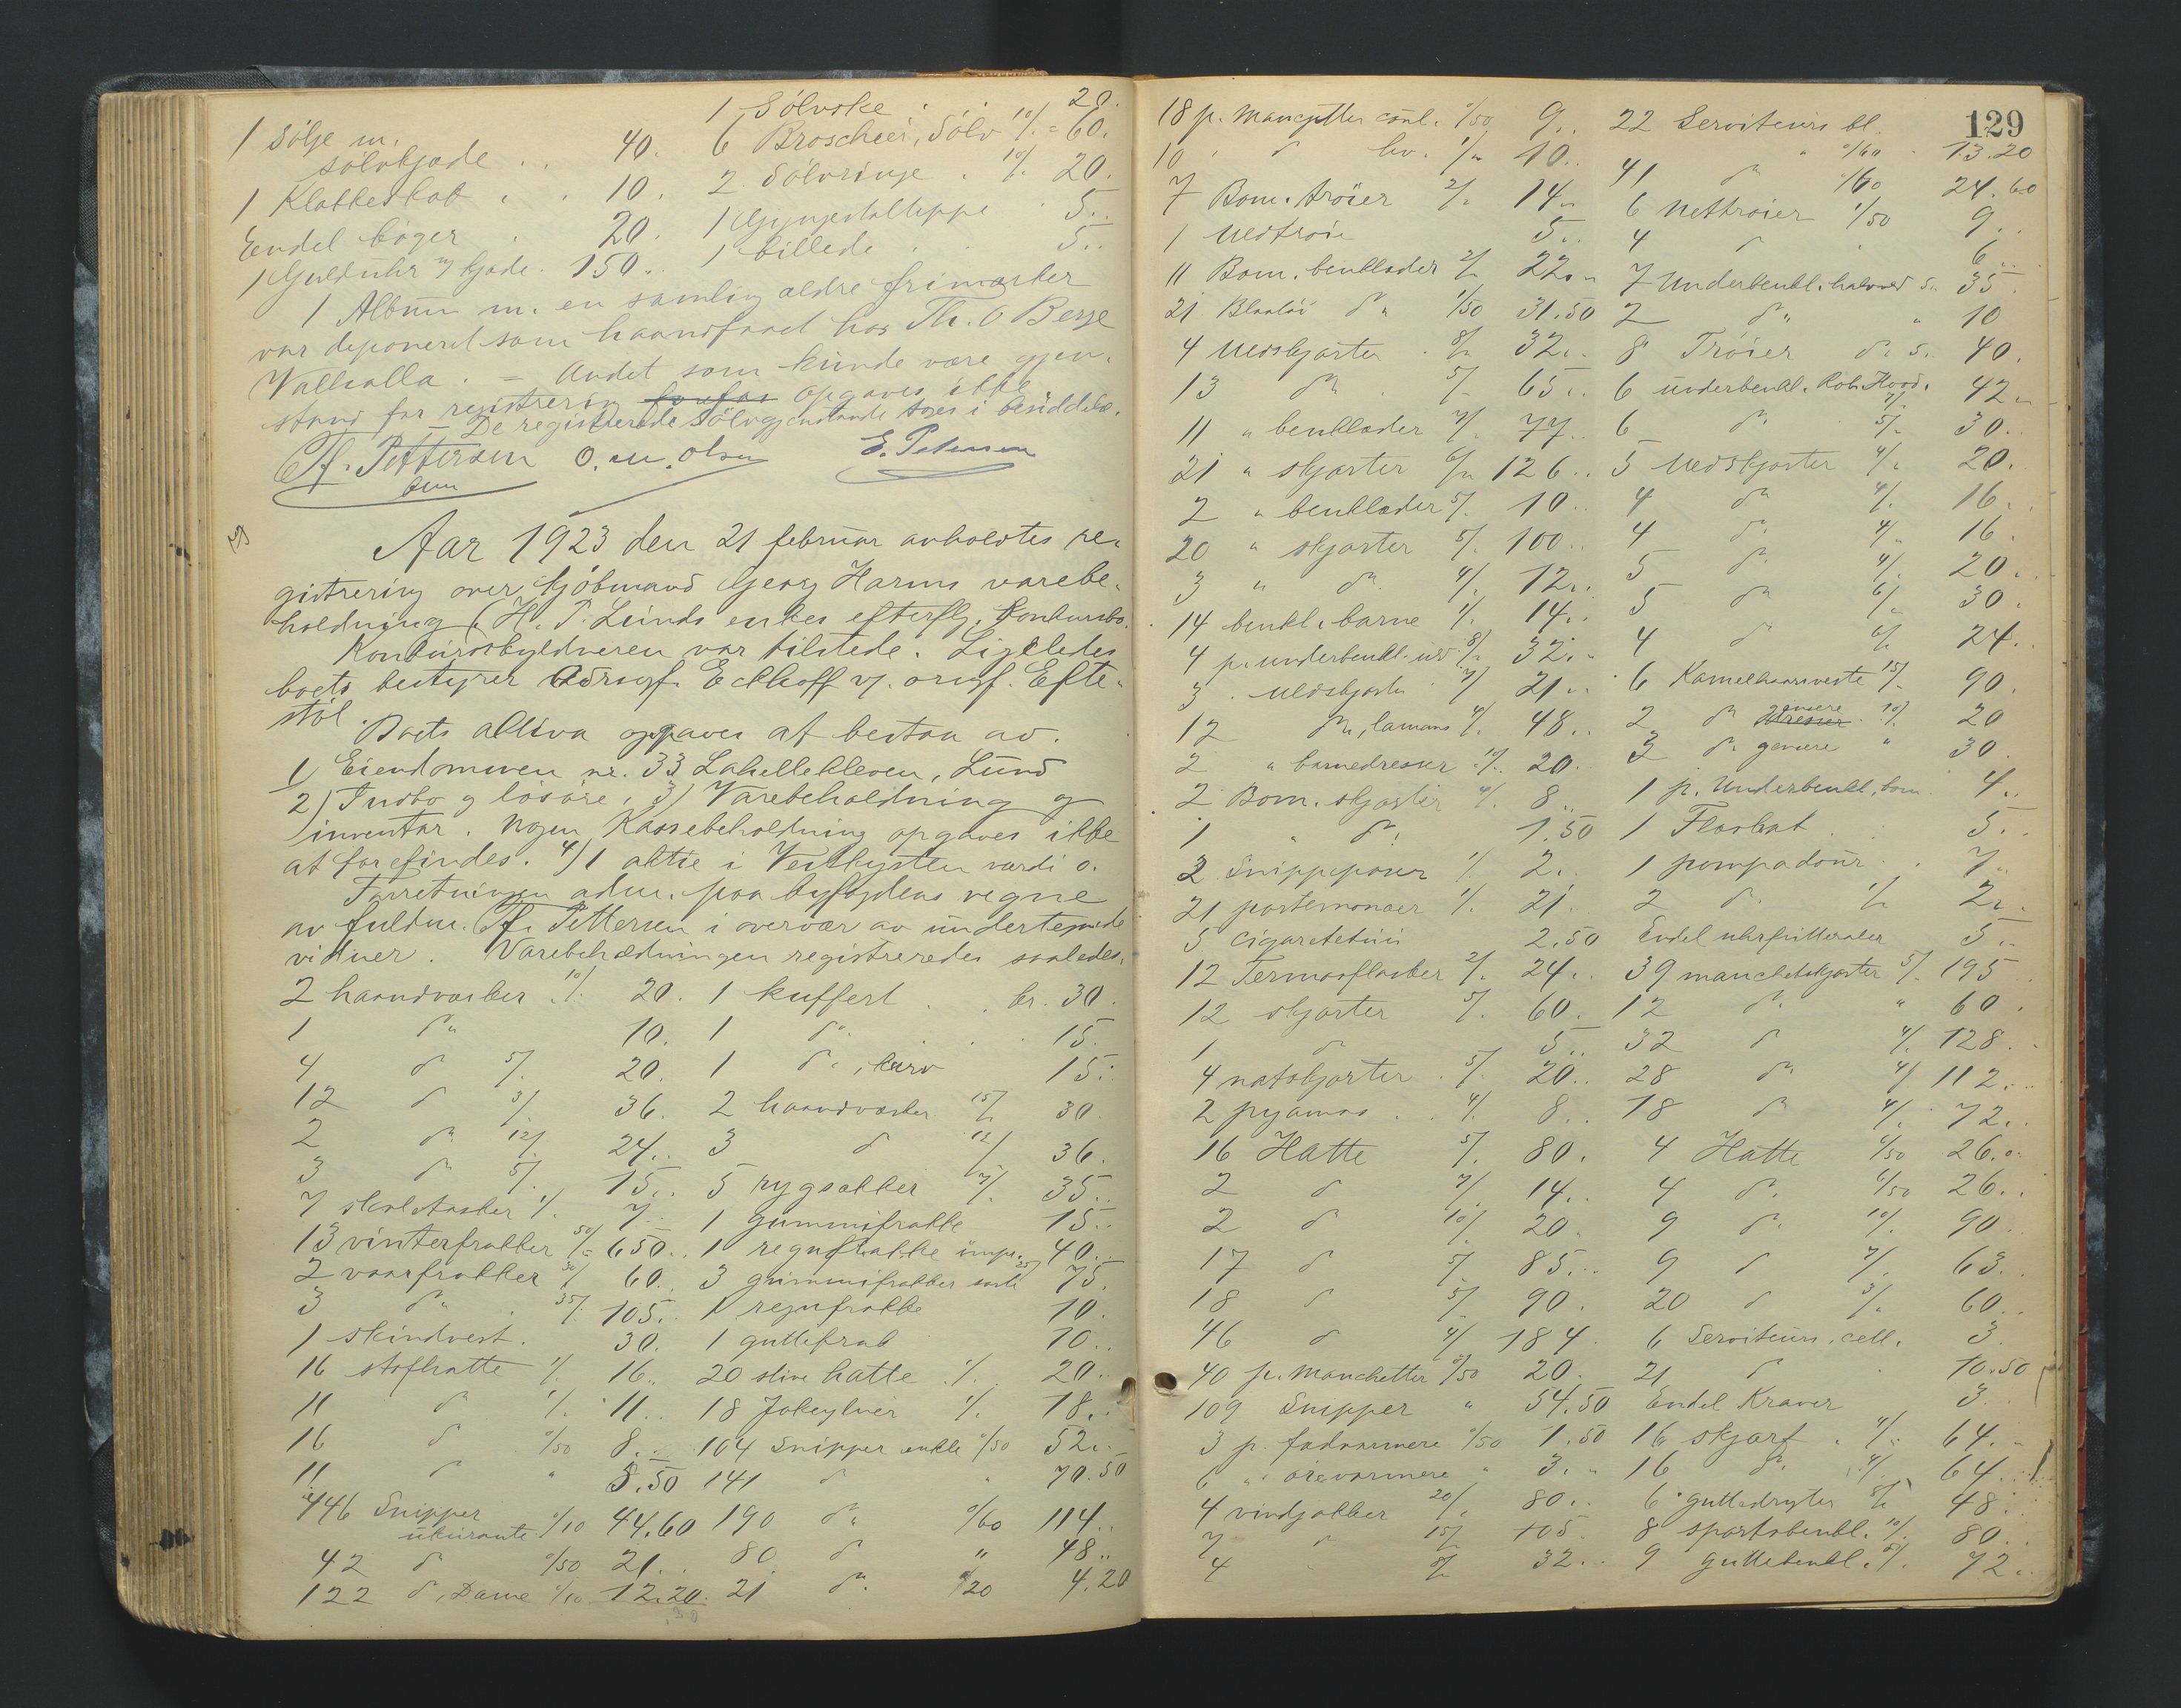 1 Sölje m. sölvkjæde . . 40.
1 Klokkeskab . . 10.
Endel böger . 20.
1 Gulduhr m/ kjæde . 150..
1 Sölvske . . 20.
6 Broscher, Sölv 10/. = 60.
2 Sölvringe . 10/. 20.
1 Gyngestolteppe . 5..
1 billede . . 5..
1 Album m. en samling ældre frimerker
var deponeret som haandfaaet hos Th. O Berge
Valhalla. = Andet som kunde være gjen-
stand for registrering opgaves ikke.
— De registrerede Sölvgjenstande toges i besiddelse.
Chf. Pettersen O. M. Olsen E. Petersen
Aar 1923 den 21 februar avholdtes re-
gistrering over kjöbmand Georg Harms varebe-
holdning (H. P. Lunds enkes efterflg. konkursbo.
Konkursskyldneren var tilstede. Ligeledes
boets bestyrer Adrsgf. Eckhoff v/ orsgf. Efte-
stöl.
Boets aktiva opgaves at bestaa av.
1) Eiendommen nr. 33 Lahellekleven, Lund
2) Indbo og lösöre, 3) Varebeholdning og
inventar. Nogen Kassebeholdning opgaves ikke
at forefindes. 4) 1 aktie i Vestkysten værdi 0.
Forretningen adm. paa byfogdens vegne
av fuldm. Chf. Pettersen i overvær av undertegnede
vidner. Varebeholdningen registreredes saaledes.
2 haandvæsker 10/. 20. 1 kuffert . . kr. 30.
1 do 10. 1 do . . 15.
4 do 5/. 20. 1 do, kurv 15.
12 do 3/. 36. 2 haandvæsker 15/. 30.
2 do 12/. 24.. 3 do 12/. 36.
3 do 5/. 15.. 5 rygsækker 7/. 35..
7 skoletasker 1/. 7.. 1 gummifrakke 15..
13 vinterfrakker 50/. 650.. 1 regnfrakke impr. 40..
2 vaarfrakker 30/. 60. 3 gummifrakker 25/ 75.
3 do 35/. 105.. 1 regnfrakke 10.
1 skindvest. 30. 1 guttefrak 10..
16 stofhatte 1/. 16.. 20 stive hatte 1/. 20..
11 do 1/. 11.. 18 Jokeyluer 1/. 18..
16 do 0/50 8.. 104 Snipper enkle 0/50 52..
11 do " 5.50 141 do " 70.50
446 Snipper ukurante 0/10 44.60 190 do 0/60 114..
42 do 0/50 21.. 80 do " 48..
122 do, Dame 0/10 12.20. 21 do 0/20 4.20
129
18 p. Manchetter coul. 0/50 9..
10 " do hv. 1/. 10..
7 Bom. tröier 2/. 14..
1 Uldtröie 5..
11 Bom. benklæder 2/. 22..
21 Blaatöi do 1/50 31.50
4 Uldskjorter 8/. 32..
13 do 5/. 65..
11 " benklæder 7/. 77..
21 " skjorter 6/. 126..
2 " benklæder 5/. 10..
20 " skjorter 5/. 100..
3 " do 4/. 12..
14 benkl. barne 1/. 14..
4 p. underbenkl. uld 8/. 32..
3 . uldskjorter 7/. 21..
12 do, lamans 4/. 48..
2 " barnedresser 10/. 20.
2 Bom. skjorter 4/. 8..
1 " do 1.50
2 Snippeposer 1/. 2..
21 portemonæer 1/. 21.
5 Cigaretetuii 2.50
12 Termosflasker 2/. 24..
12 skjorter 5/. 60.
1 do 5..
4 natskjorter 5/. 20..
2 pyamas . . 4/. 8..
16 Hatte 5/. 80.
2 do 7/. 14..
2 do 10/. 20.
17 do 5/ 85..
18 do 5/ 90.
46 do 4/ 184.
40 p. Manchetter 0/50 20.
109 Snipper " 54.50
3 p. fodvarmere 0/50 1.50
6 " örevarmere " 3..
4 vindjakker 20/. 80..
7 do 15/. 105.
4 8/. 32..
22 Serviteurs bl. 0/60 13.20
41 do 0/60 24.60
6 Nettröier 1/50 9..
4 do 6..
7 Underbenkl. halvuld 5.. 35.
2 do " 10
8 Tröier do 5.. 40.
6 underbenkl. Rob. Hood. 7/. 42..
6 do 5/. 30..
5 Uldskjorter 4/. 20.
4 do 4/. 16..
4 do 4/. 16.
5 do 4/. 20..
5 do 6/. 30.
4 do 6/. 24..
6 Kamelhaarsveste 15/. 90.
2 do gensere 10/. 20
3 do gensere " 30.
1 p. Underbenkl, bom. 4..
1 Floshat . . 5..
1 pompadour . . 7..
2 do 1/. 2..
Endel uhrfutteraler 5..
39 manchetskjorter 5/. 195
12 do " 60.
32 do 4/. 128..
28 do 4/ 112..
18 do 4/. 72..
4 Hatte 6/50 26..
4 do 6/50 26..
9 do 10/. 90.
9 do 7/. 63..
20 do 3/. 60..
6 Serviteurs, cell. 3.
21 do 10.50
Endel Kraver 3.
16 skjærf . 4/. 64..
16 do 4/. 64..
6 guttedrgter 8/. 48.
8 sportsbenkl. 10/. 80..
9 guttebenkl. 8/. 72..